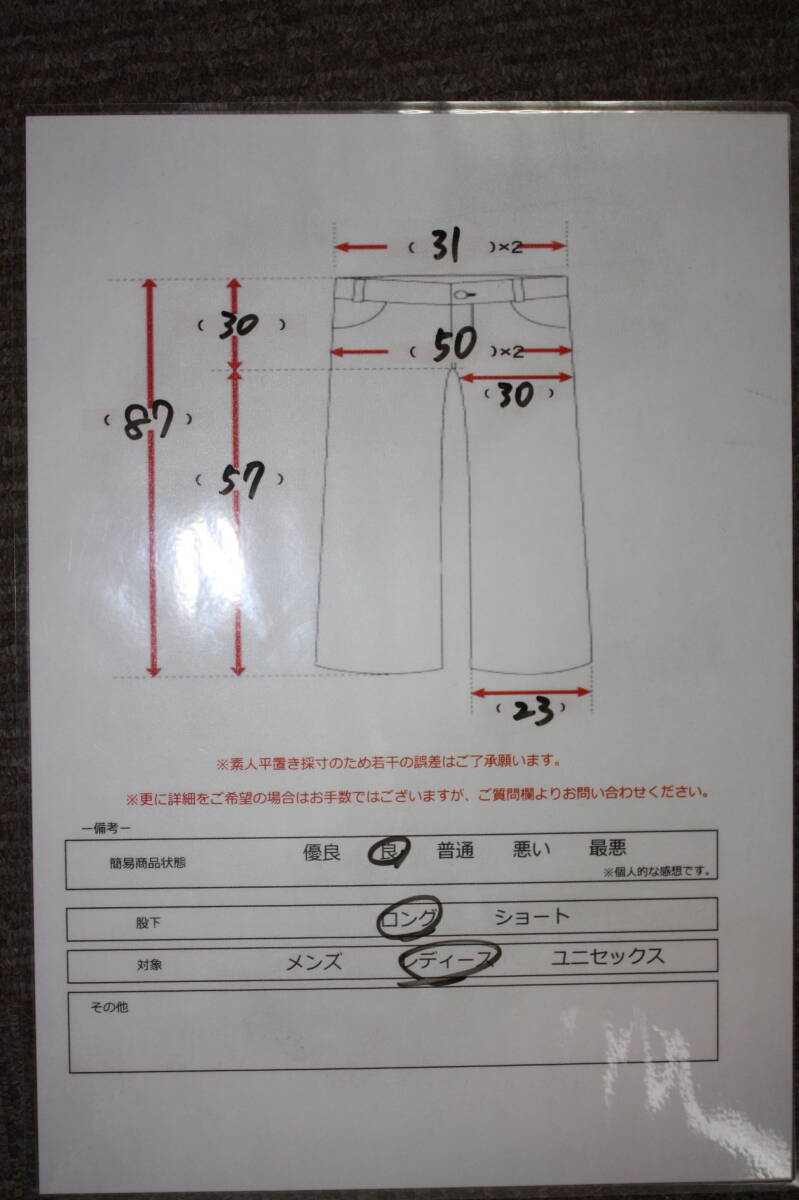 ( 31 )×2
( 30 )
( 50 )×2
( 30 )
( 87 )
( 57 )
( 23 )
※素人平置き採寸のため若干の誤差はご了承願います。
※更に詳細をご希望の場合はお手数ではございますが、ご質問欄よりお問い合わせください。
ー備考ー
簡易商品状態 優良 良 普通 悪い 最悪
※個人的な感想です。
股下 ロング ショート
対象 メンズ レディース ユニセックス
その他